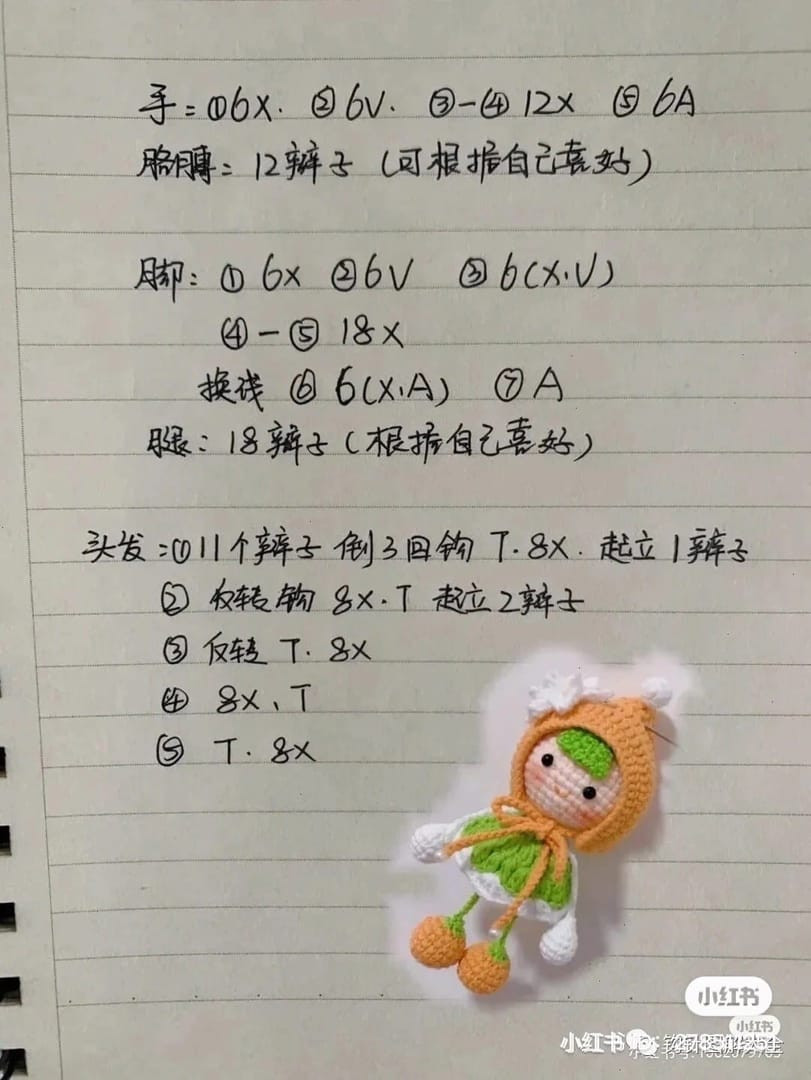 手：①6X. ②6V. ③-④12X ⑤6A
胳膊：12辫子（可根据自己喜好）
脚：①6X ②6V ③6(X.V)
④-⑤18X
换线 ⑥6(X.A) ⑦A
腿：18辫子（根据自己喜好）
头发：①11个辫子 倒3回钩 T.8X. 起立1辫子
② 反转钩 8X.T 起立2辫子
③ 反转 T.8X
④ 8X、T
⑤ T.8X
小红书
小红书
小红书